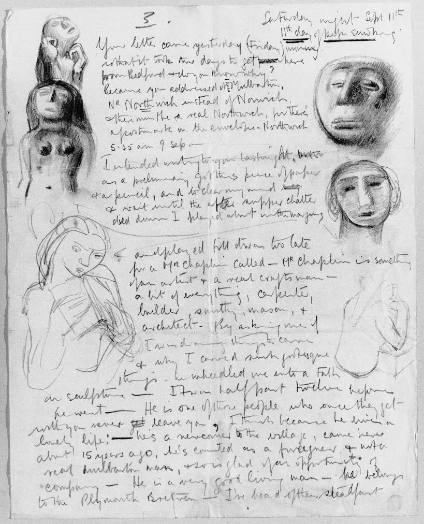 3.
Saturday night Sept 11th
11th day of pipe smoking
Your letter came yesterday (Friday) morning
what it took two days to get here
from Bedford & do you know why?
because you addressed it Mulbarton,
Nr Northwich instead of Norwich,
& there must be a real Northwich, for there's
a postmark on the envelope - Northwich
5.55 am 9 Sep -
I intended writing to you last night,
as a preliminary, got this piece of paper
& a pencil, and to clear my mind
& wait until the after supper chatter
died down I played about in the margins
and played till it was too late
for a Mr Chaplin called - Mr Chaplin is something
of an artist & a real craftsman -
a bit of everything, carpenter,
builder, smithy, mason, &
architect - By asking me if
I carved many things to came
& why I carved such grotesque
things - he wheedled me into a talk
on sculpture - It was half past twelve before
he went - He is one of those people who once they get
with you never leave you, I think because he lives a
lonely life - he's a newcomer to the village, came here
about 15 years ago, is counted as a foreigner & not a
real mulbarton man, & so is glad of an opportunity of
company - He is a very good living man - he belongs
to the Plymouth Brethren - I've heard of their steadfast